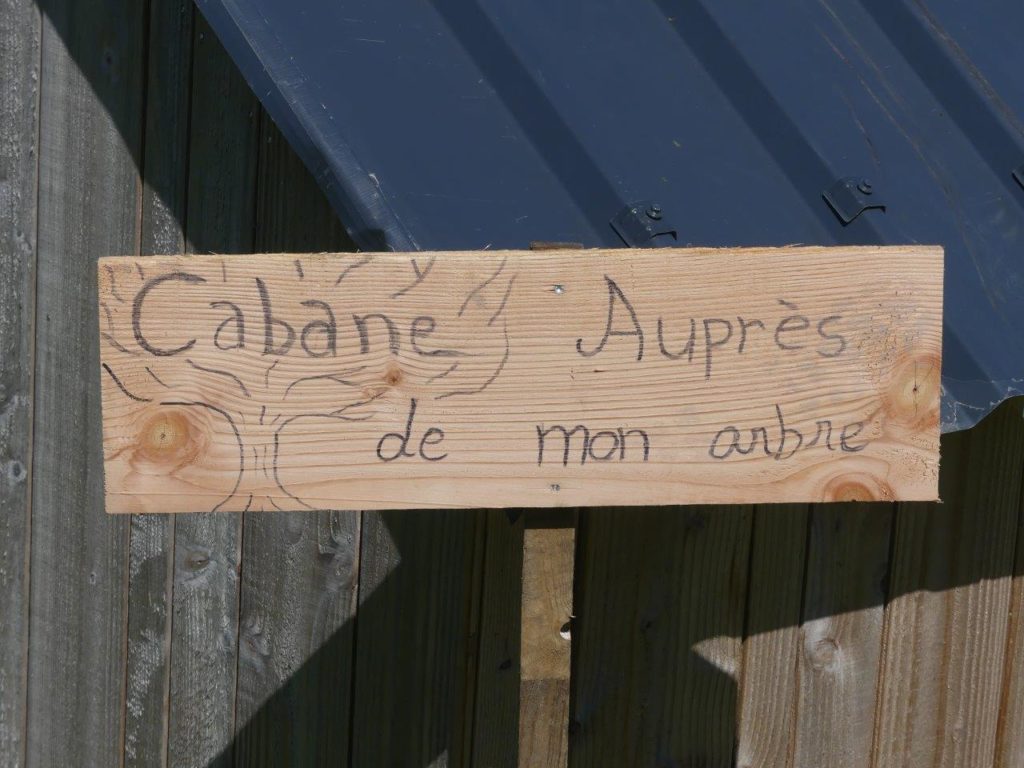 Cabane Auprès
de mon arbre